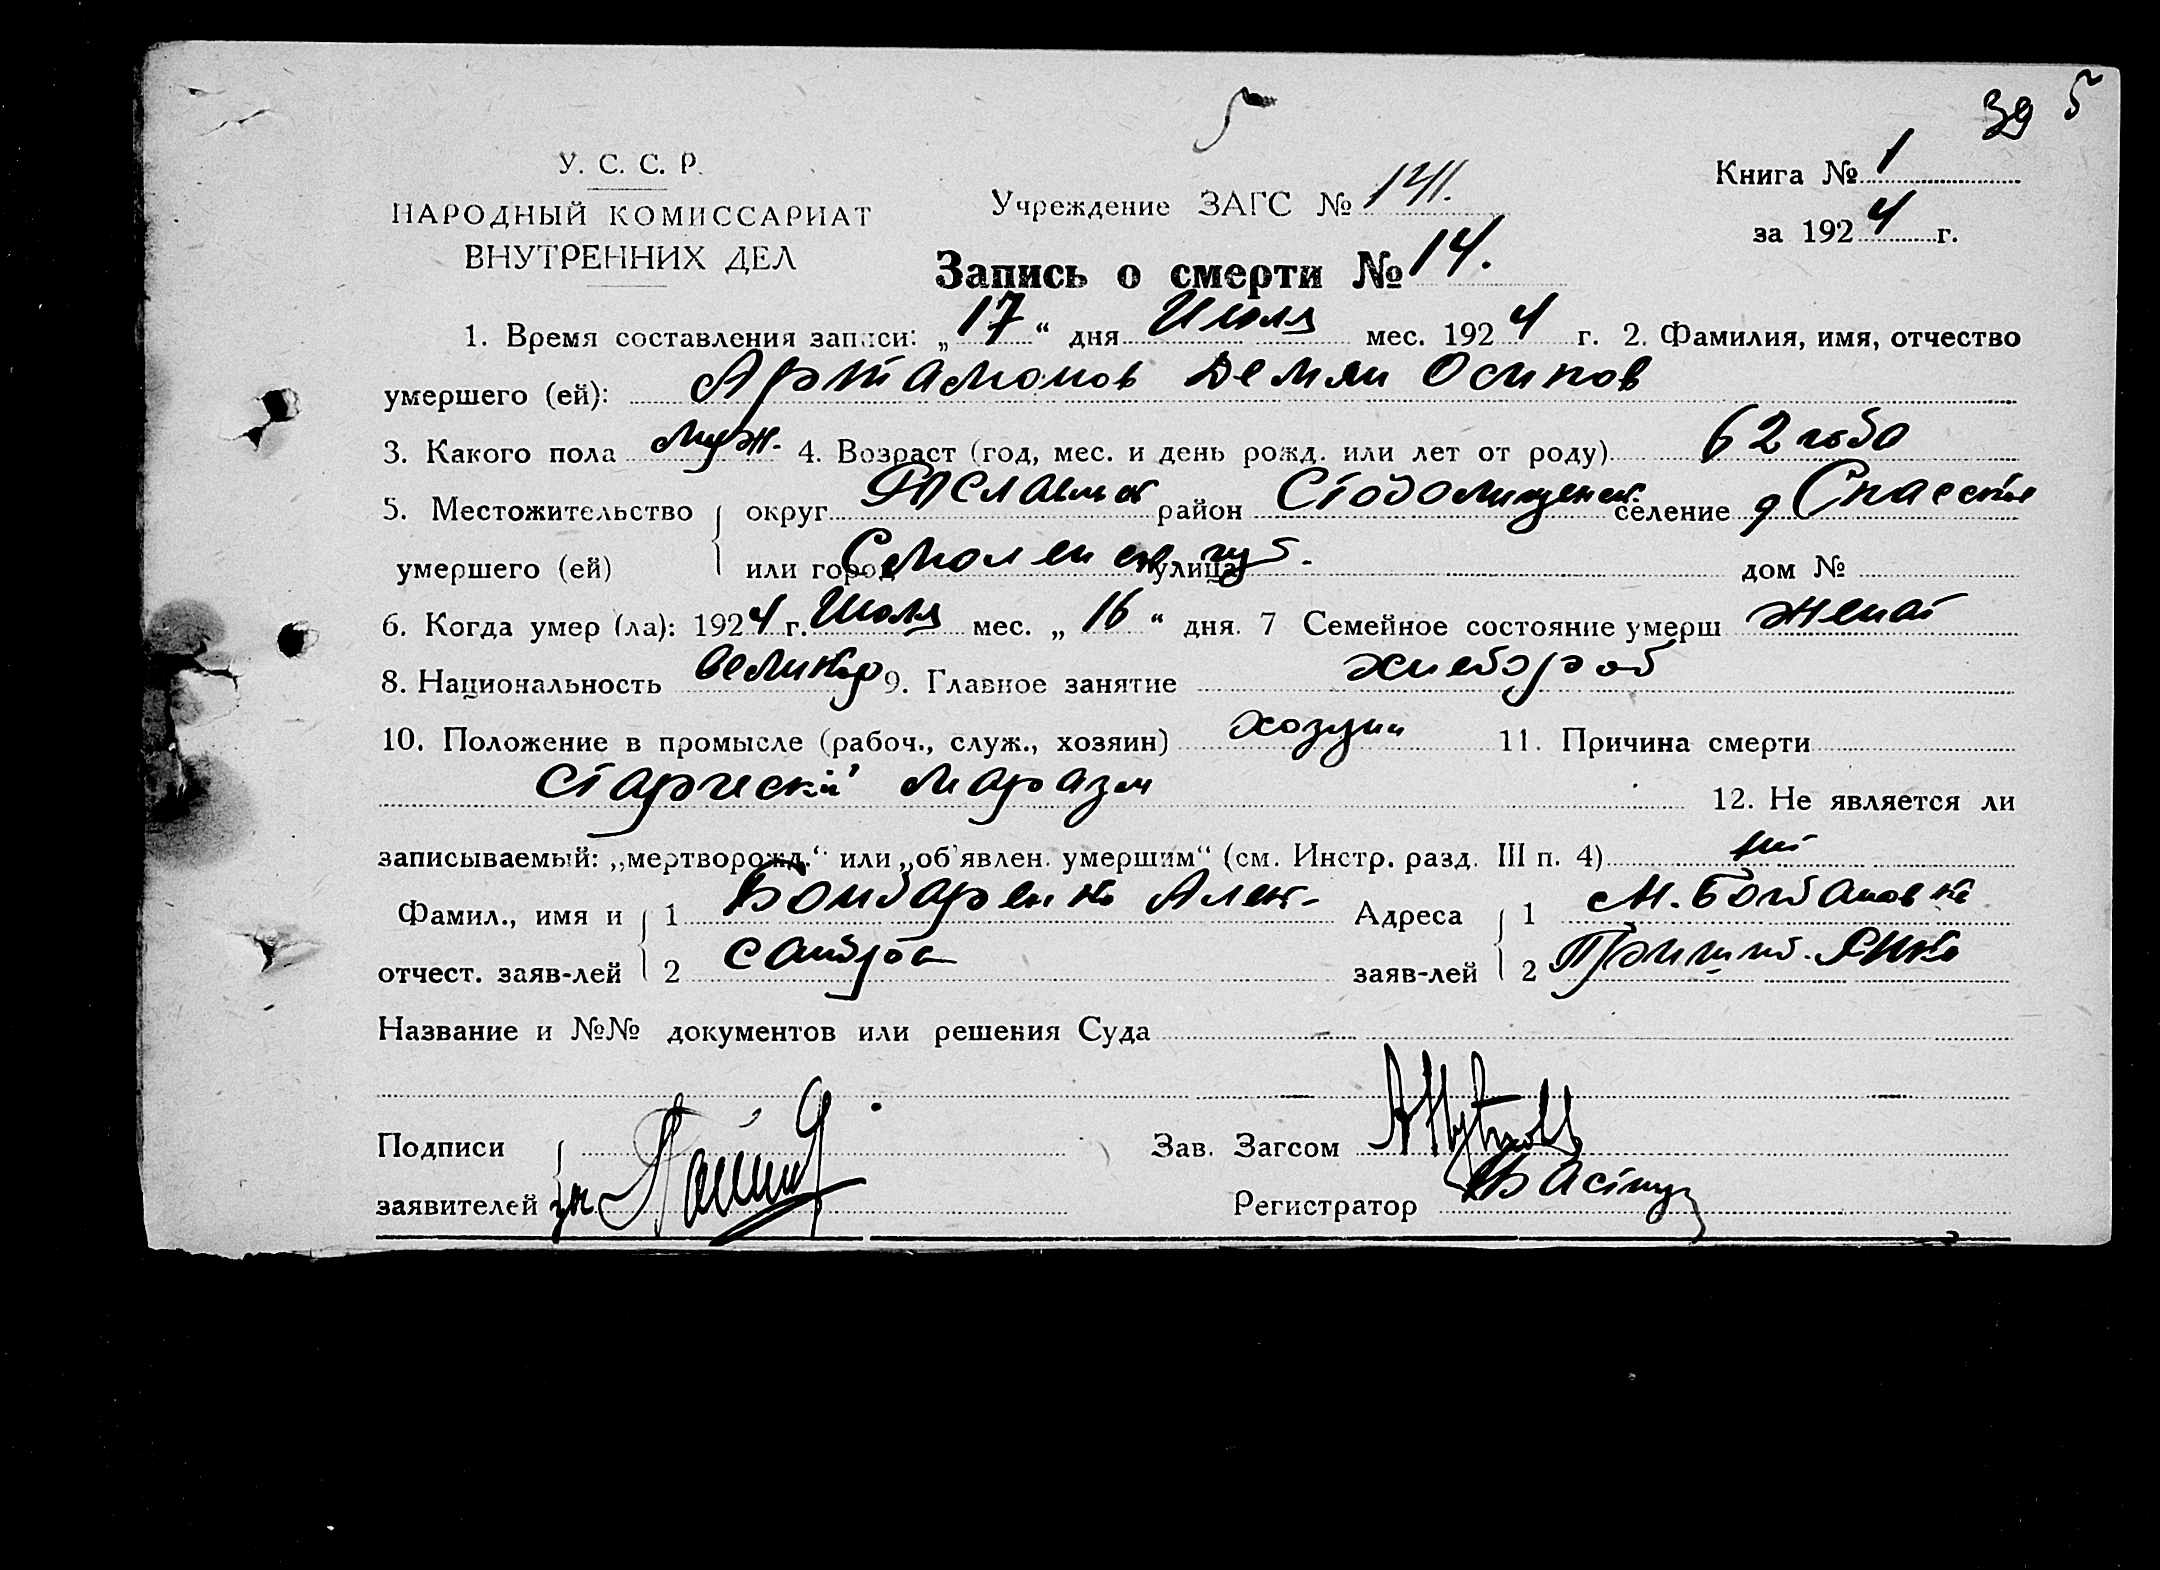 39 5
5
У. С. С. Р.
НАРОДНЫЙ КОМИССАРИАТ
ВНУТРЕННИХ ДЕЛ
Учреждение ЗАГС № 141.
Книга № 1
за 1924 г.
Запись о смерти № 14.
1. Время составления записи: „17“ дня Июля мес. 1924 г. 2. Фамилия, имя, отчество
умершего (ей): Артамонов Демян Осипов
3. Какого пола муж. 4. Возраст (год, мес. и день рожд. или лет от роду) 62 года
5. Местожительство округ Рославльск район Стодолищенск. селение д Спасское
умершего (ей) или город Смоленск губ. улица дом №
6. Когда умер (ла): 1924 г. Июля мес. „16“ дня. 7 Семейное состояние умерш женат
8. Национальность великор 9. Главное занятие хлебороб
10. Положение в промысле (рабоч., служ., хозяин) хозяин 11. Причина смерти
старческий маразм 12. Не является ли
записываемый: „мертворожд.“ или „об'явлен. умершим“ (см. Инстр. разд. III п. 4) нет
Фамил., имя и 1 Бондаренко Алек- Адреса 1 М. Богдановка
отчест. заяв-лей 2 сандра заяв-лей 2
Название и №№ документов или решения Суда
Подписи Зав. Загсом
заявителей за Регистратор